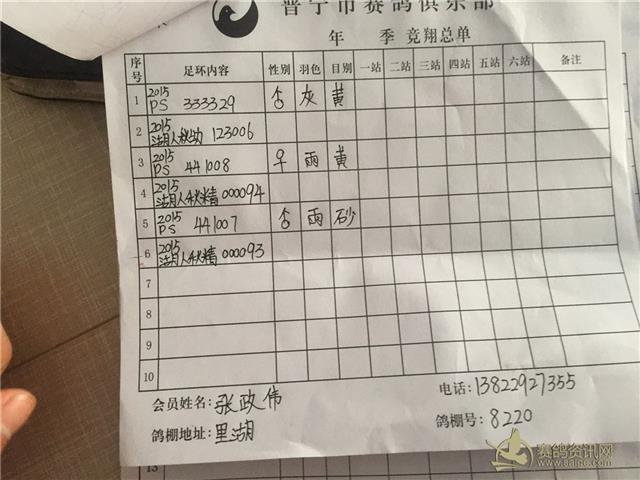 普宁市赛鸽俱乐部
年 季 竞翔总单
序号 足环内容 性别 羽色 目别 一站 二站 三站 四站 五站 六站 备注
1 2015 PS 333329 灰 黄
2 2015 湖人秋幼 123006
3 2015 PS 441008 雨 黄
4 2015 湖人秋精 000094
5 2015 PS 441007 雨 砂
6 2015 湖人秋精 000093
7
8
9
10
会员姓名: 张政伟 电话: 13822927355
鸽棚地址: 里湖 鸽棚号: 8220
13
赛鸽资讯网